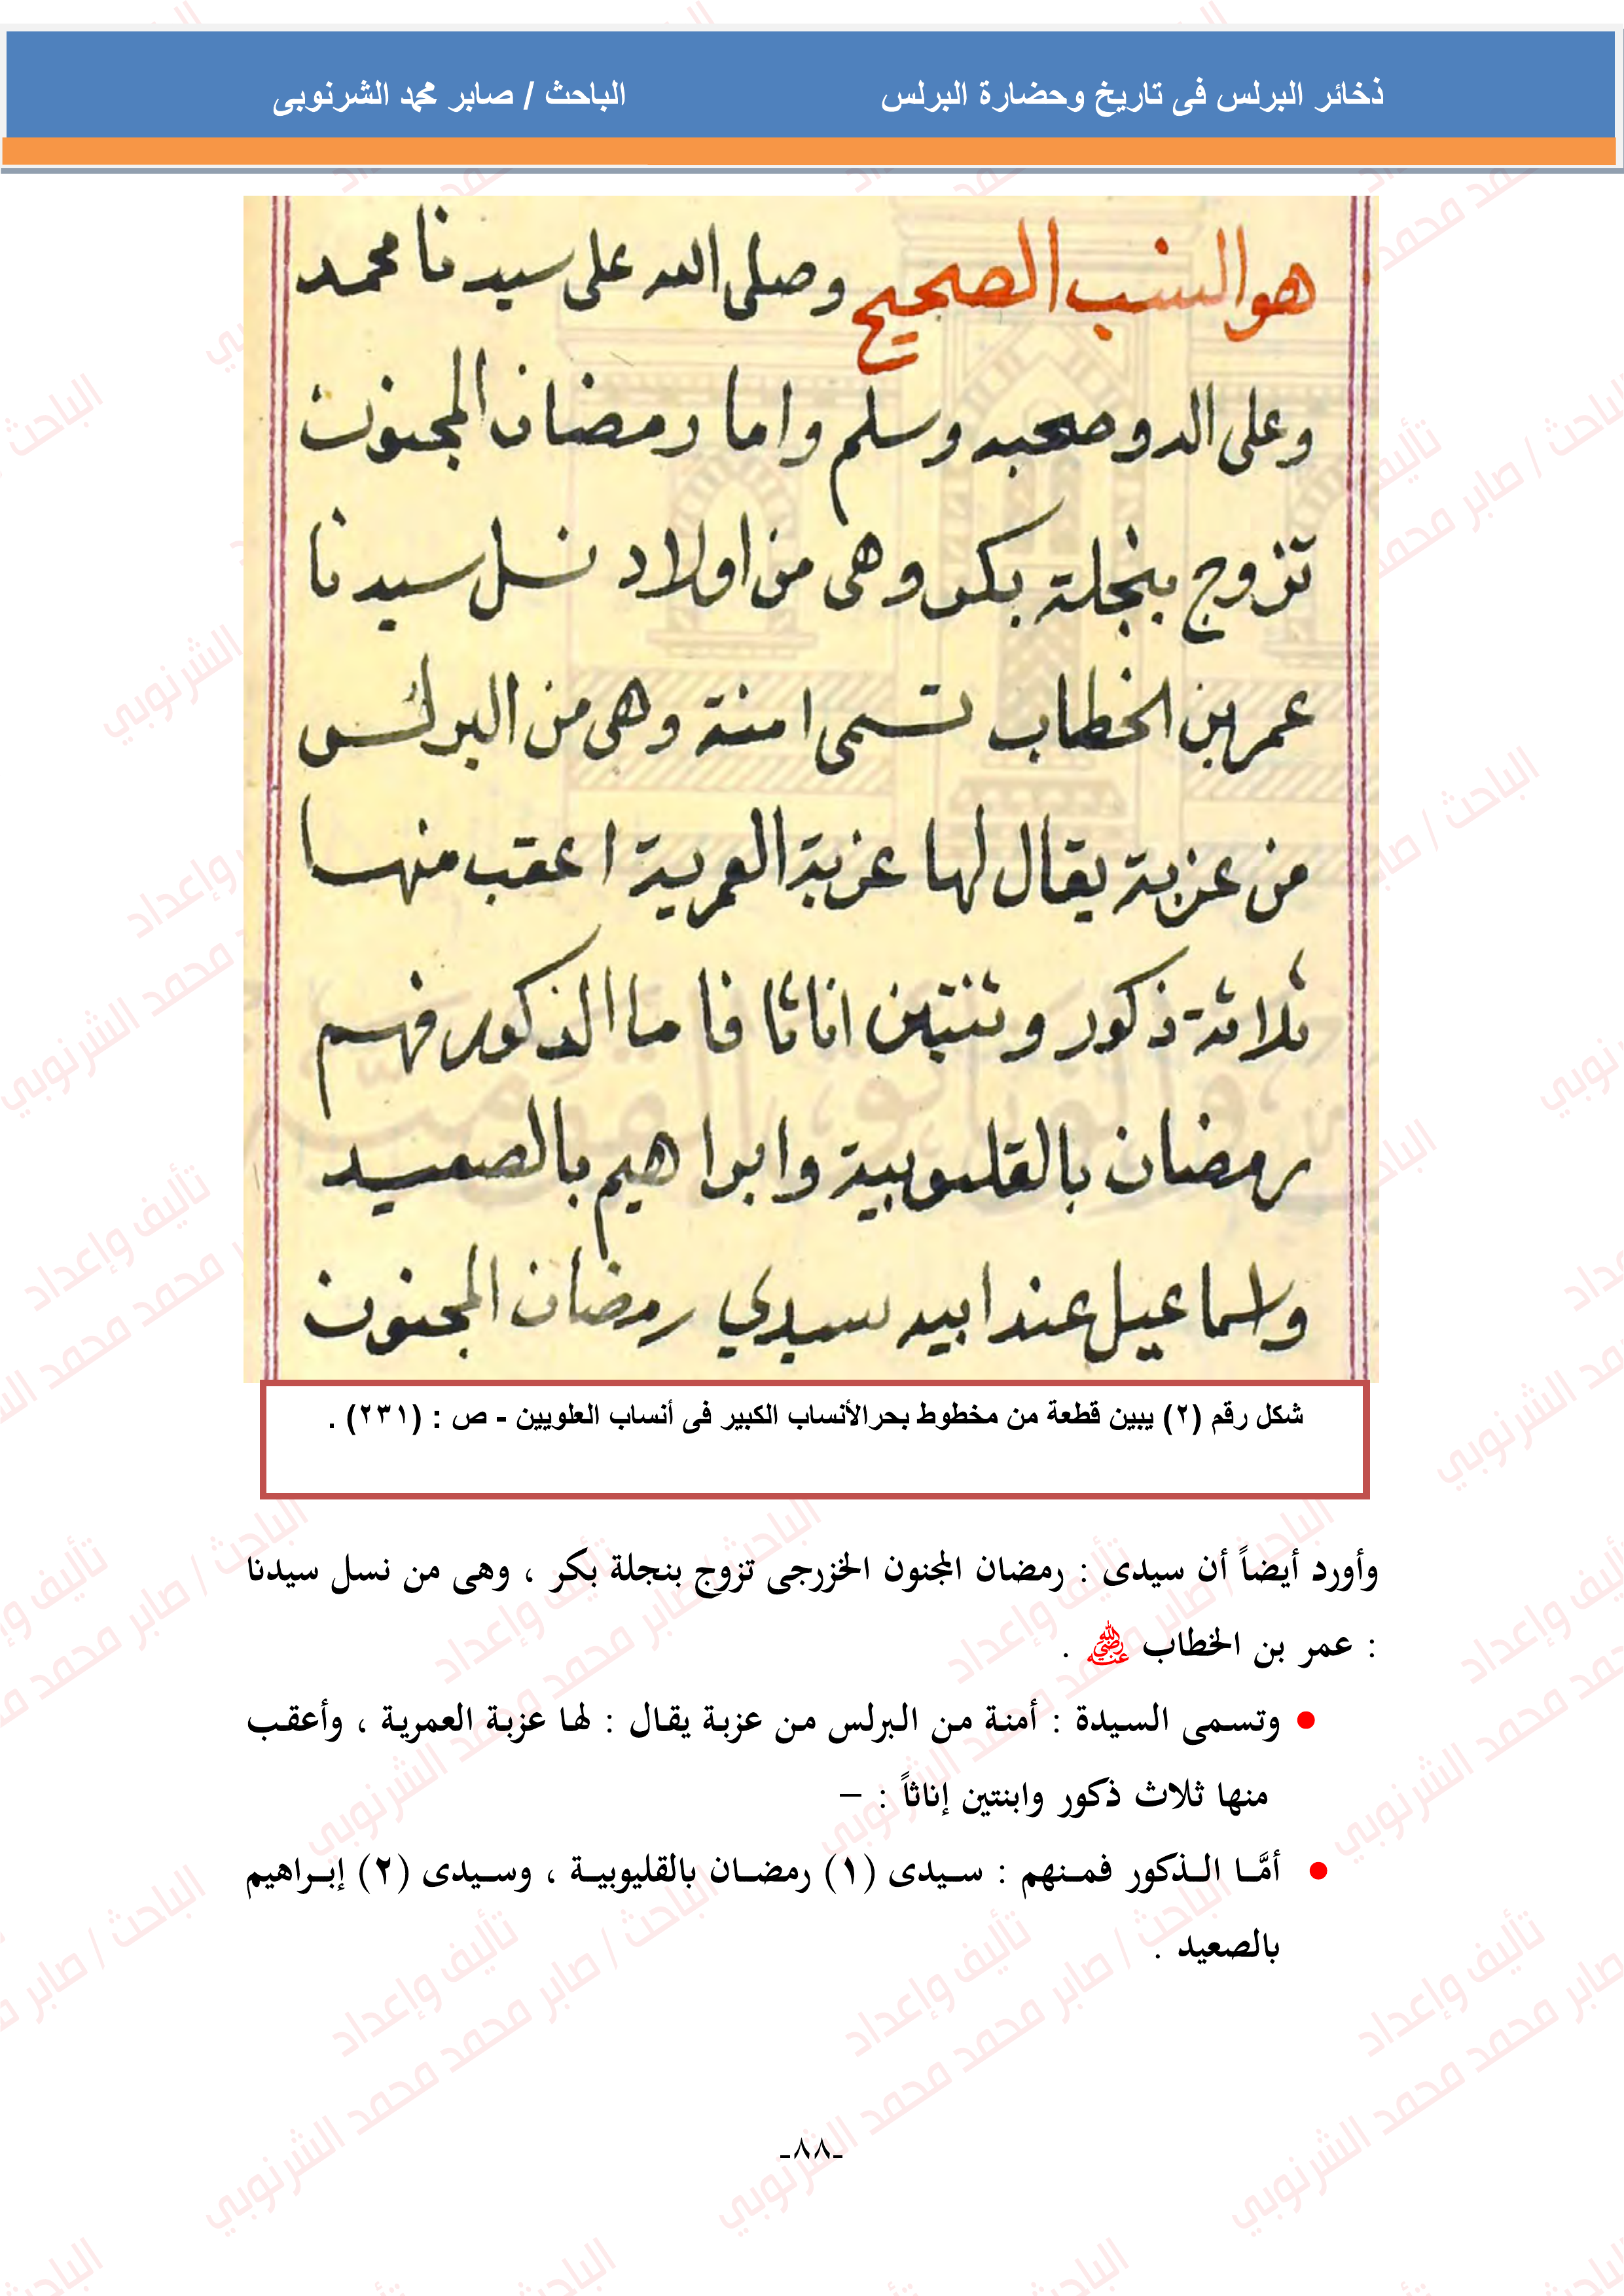 ذخائر البرلس فى تاريخ وحضارة البرلس الباحث / صابر محمد الشرنوبى
هو النسب الصحيح وصلى الله على سيدنا محمد
وعلى اله وصحبه وسلم واما رمضان المجنون
تزوج بنجلة بكر وهى من اولاد نسل سيدنا
عمر بن الخطاب تسمى امنة وهى من البرلس
من عزبة يقال لها عزبة العمرية اعقب منها
ثلاثة ذكور وثنتين اناثا فاما الذكور فهم
رمضان بالقليوبية وابراهيم بالصعيد
واسماعيل عند ابيه سيدي رمضان المجنون
شكل رقم (٢) يبين قطعة من مخطوط بحرالأنساب الكبير فى أنساب العلويين - ص : (٢٣١) .
وأورد أيضاً أن سيدى : رمضان المجنون الخزرجى تزوج بنجلة بكر ، وهى من نسل سيدنا
: عمر بن الخطاب رضي الله عنه .
• وتسمى السيدة : أمنة من البرلس من عزبة يقال : لها عزبة العمرية ، وأعقب
منها ثلاث ذكور وابنتين إناثاً : –
• أمَّا الذكور فمنهم : سيدى (١) رمضان بالقليوبية ، وسيدى (٢) إبراهيم
بالصعيد .
-٨٨-
تأليف وإعداد
الباحث / صابر محمد محمد الشرنوبي